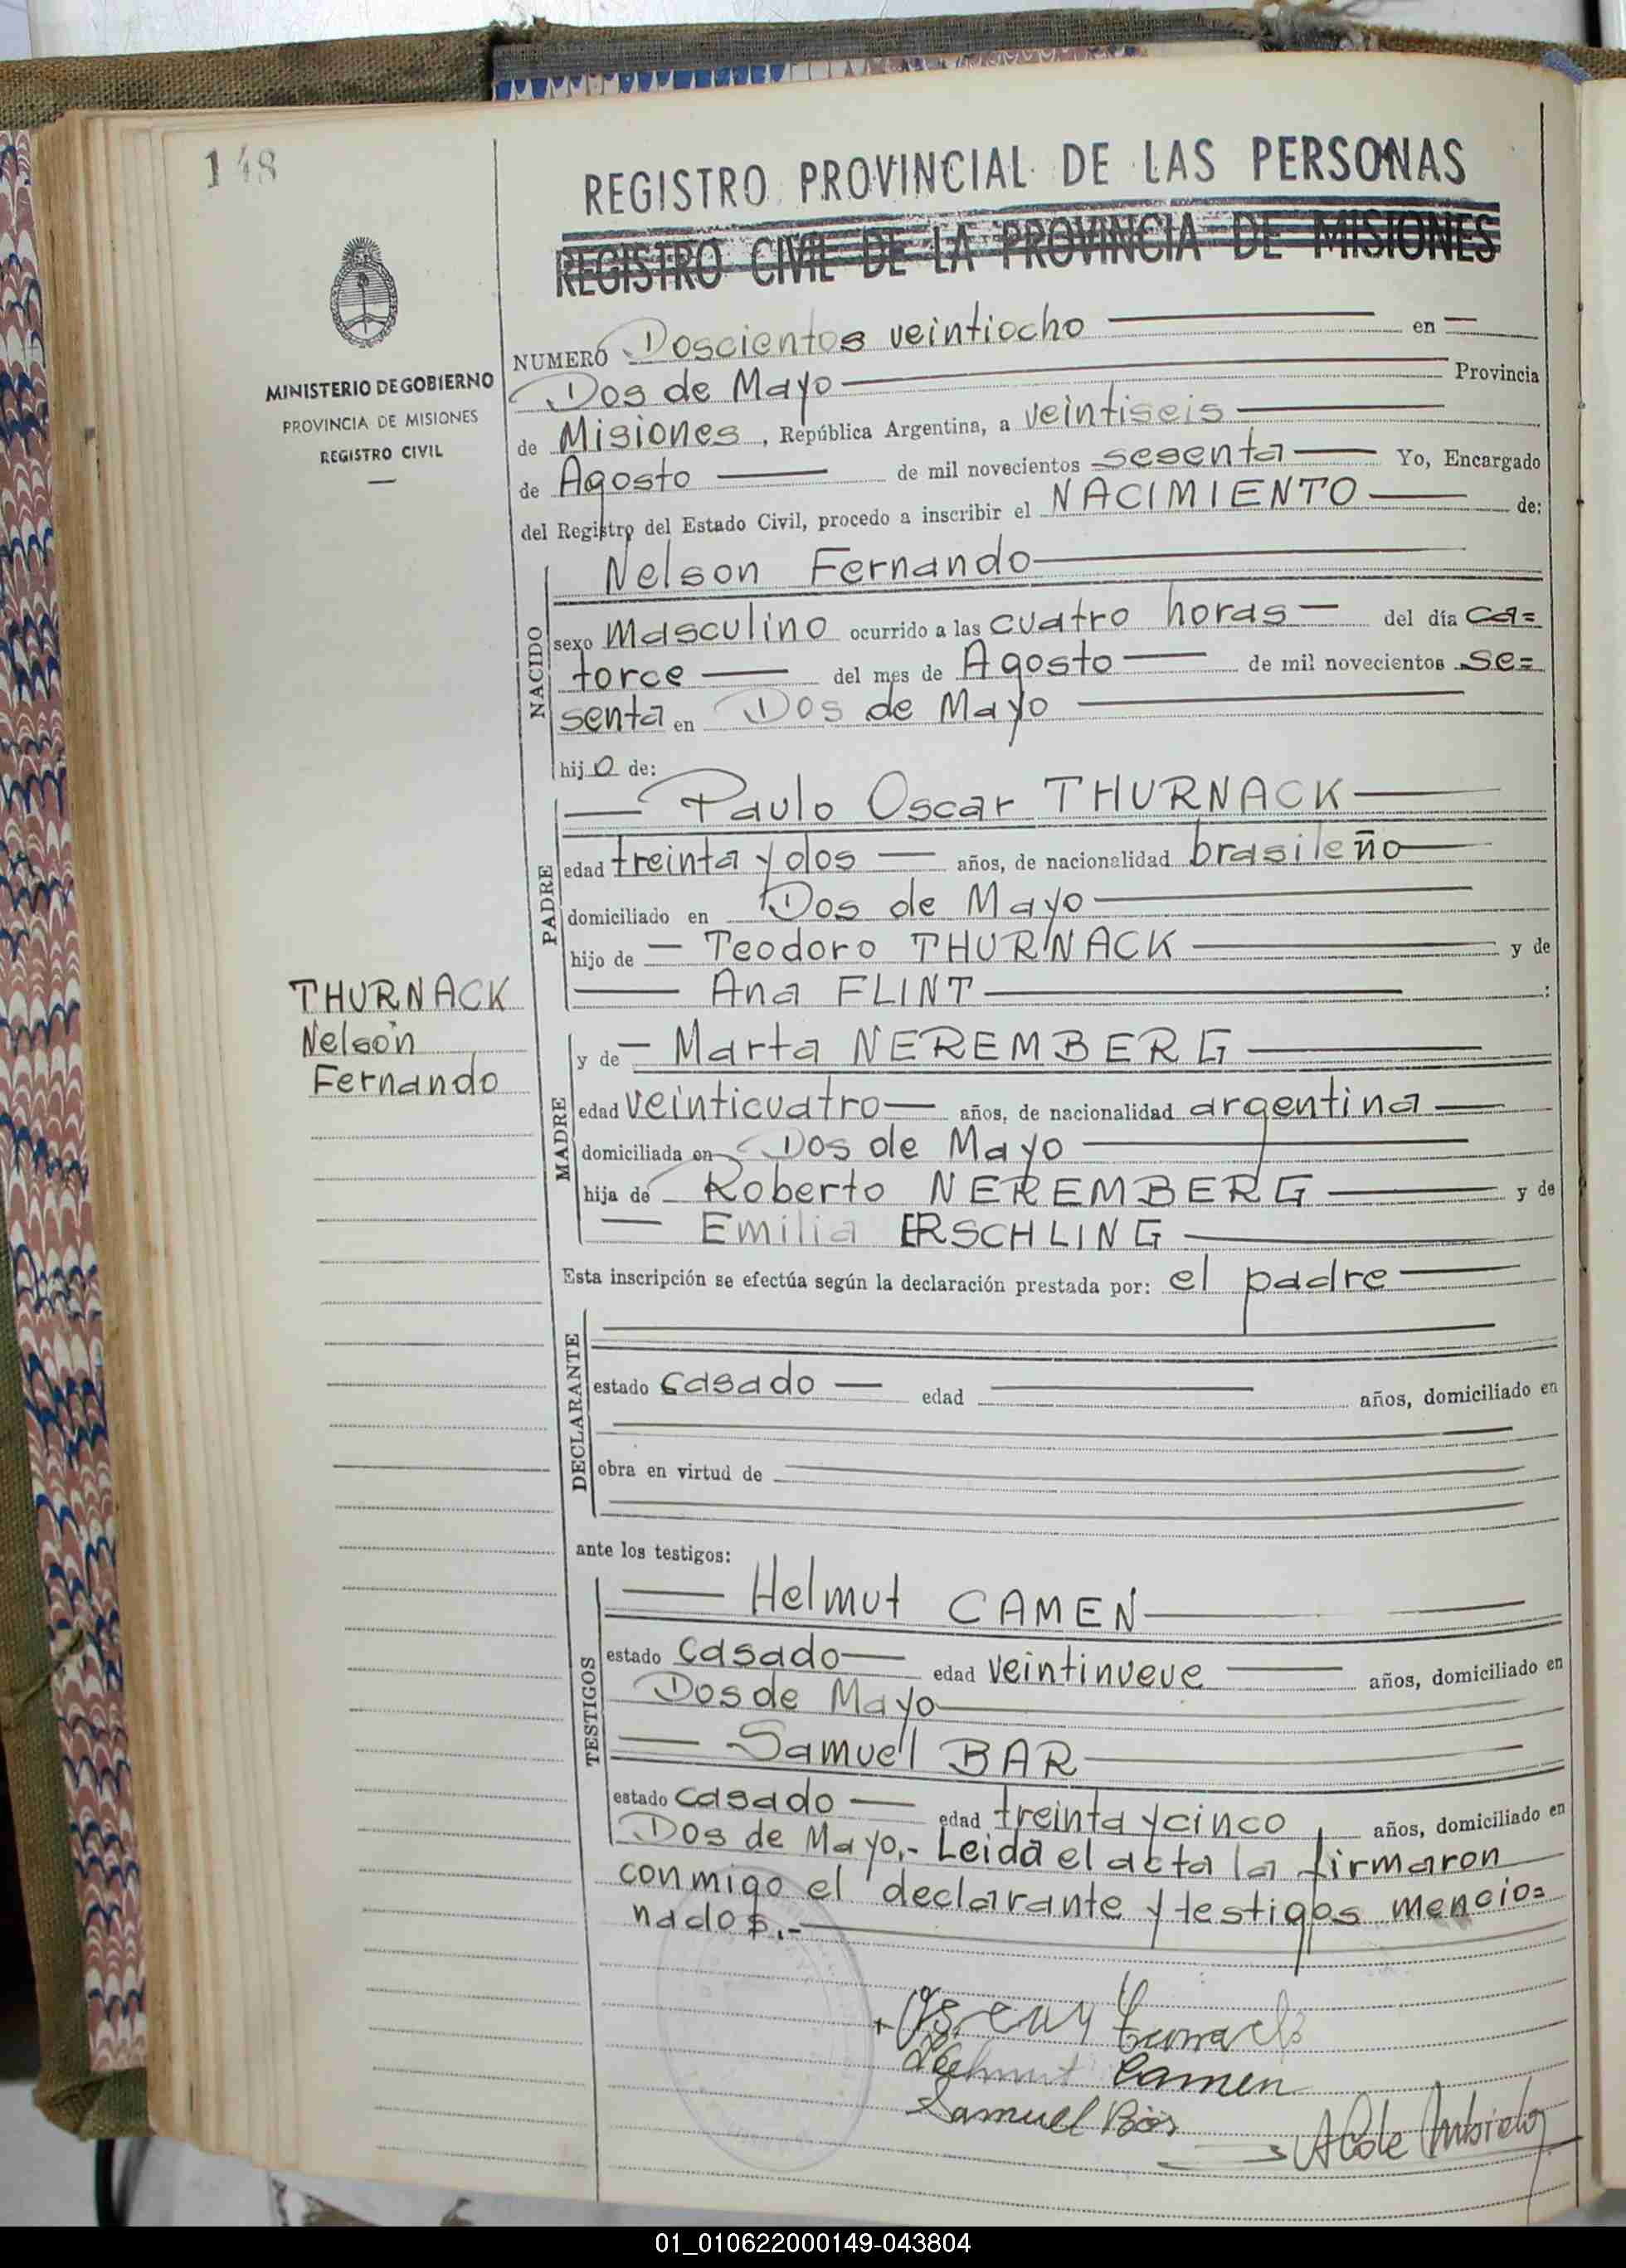 148
REGISTRO PROVINCIAL DE LAS PERSONAS
REGISTRO CIVIL DE LA PROVINCIA DE MISIONES
MINISTERIO DE GOBIERNO
PROVINCIA DE MISIONES
REGISTRO CIVIL
NUMERO Doscientos veintiocho en
Dos de Mayo Provincia
de Misiones, República Argentina, a veintiseis
de Agosto de mil novecientos sesenta Yo, Encargado
del Registro del Estado Civil, procedo a inscribir el NACIMIENTO de:
NACIDO
Nelson Fernando
sexo masculino ocurrido a las cuatro horas del día ca=
torce del mes de Agosto de mil novecientos se=
senta en Dos de Mayo
hijo de:
PADRE
Paulo Oscar THURNACK
edad treinta y dos años, de nacionalidad brasileño
domiciliado en Dos de Mayo
hijo de Teodoro THURNACK y de
Ana FLINT :
THURNACK
Nelson
Fernando
MADRE
y de Marta NEREMBERG
edad veinticuatro años, de nacionalidad argentina
domiciliada en Dos de Mayo
hija de Roberto NEREMBERG y de
Emilia ERSCHLING
Esta inscripción se efectúa según la declaración prestada por: el padre
DECLARANTE
estado casado edad años, domiciliado en
obra en virtud de
ante los testigos:
TESTIGOS
Helmut CAMEN
estado casado edad veintinueve años, domiciliado en
Dos de Mayo
Samuel BAR
estado casado edad treinta y cinco años, domiciliado en
Dos de Mayo.- Leida el acta la firmaron
conmigo el declarante y testigos mencio=
nados.-
Helmut Camen
Samuel Bär
01_010622000149-043804